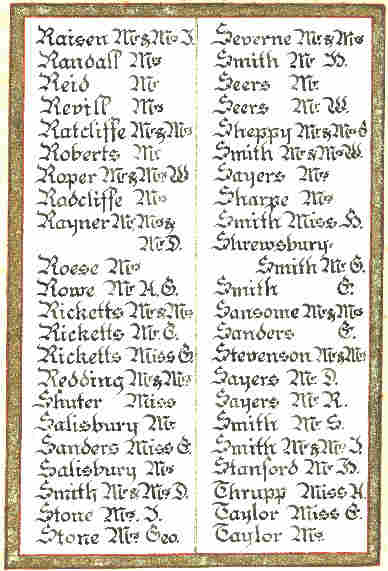 Raisen Mr & Mrs J.
Randall Mrs
Reid Mr
Revill Mrs
Ratcliffe Mr & Mrs
Roberts Mr
Roper Mr & Mrs W
Radcliffe Mrs
Rayner Mr Mrs &
Mr D.
Roese Mrs
Rowe Mr A. G.
Ricketts Mr & Mrs
Ricketts Mr C.
Ricketts Miss G
Redding Mr & Mrs
Shuter Miss
Salisbury Mr
Sanders Miss E
Salisbury Mrs
Smith Mr & Mrs D.
Stone Mrs. J.
Stone Mrs Geo.
Severne Mr & Mrs
Smith Mr H.
Seers Mr
Seers Mr W.
Sheppy Mr & Mrs
Smith Mr & Mrs W.
Sayers Mrs
Sharpe Mrs
Smith Miss H.
Shrewsbury-
Smith Mr G.
Smith
Sansome Mr & Mrs
Sanders
Stevenson Mr & Mrs
Sayers Mr D.
Sayers Mr R.
Smith Mr S.
Smith Mr & Mrs J.
Stanford Mr H.
Thrupp Miss
Taylor Miss E.
Taylor Mrs.